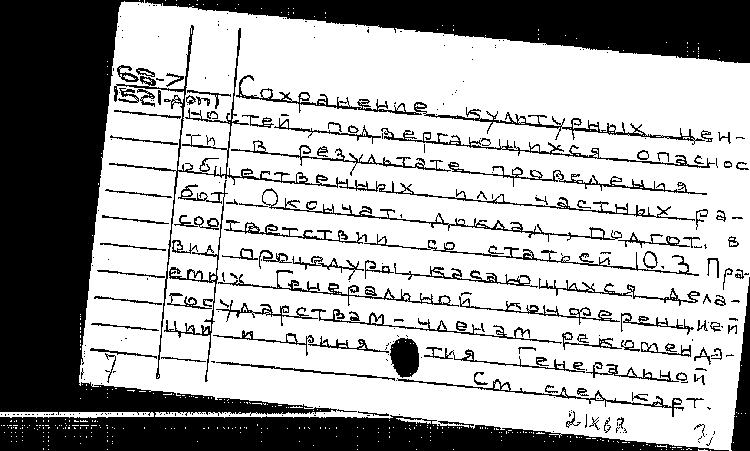 68-7
1521-дэп) Сохранение культурных цен-
ностей, подвергающихся опаснос
ти в результате проведения
общественных или частных ра-
бот. Окончат. доклад, подгот. в
соответствии со статьей 10.3 Пра-
вил процедуры, касающихся дела-
емых Генеральной конференцией
государствам-членам рекоменда-
ций и приня тия Генеральной
См. след. карт.
7